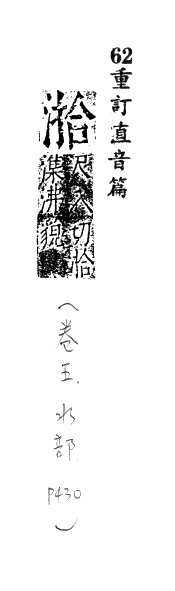 62重訂直音篇
湁
尺入切湁
潗沸貌
（卷五.水部 P430）